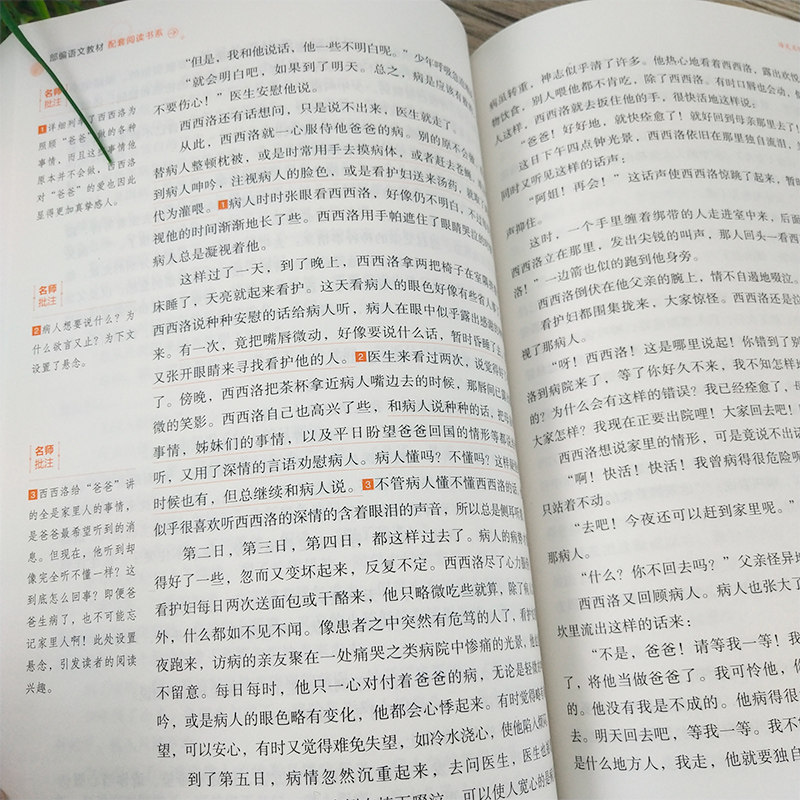 部编语文教材 配套阅读书系
名师
批注
1 详细列举了西西洛为
照顾“爸爸”做的各种
事情，而且这些事情他
原本并不会做，西西洛
对“爸爸”的爱也因此
显得更加真挚感人。
名师
批注
2 病人想要说什么？为
什么欲言又止？为下文
设置了悬念。
名师
批注
3 西西洛给“爸爸”讲
的全是家里人的事情，
是爸爸最希望听到的消
息。但现在，他听到却
像完全听不懂一样？这
到底怎么回事？即便爸
爸生病了，也不可能忘
记家里人啊！此处设置
悬念，引发读者的阅读
兴趣。
“但是，我和他说话，他一些不明白呢。”少年呼吸急
“就会明白吧，如果到了明天。总之，病是应该有
不要伤心！”医生安慰他说。
西西洛还有话想问，只是说不出来，医生就走了。
从此，西西洛就一心服侍他爸爸的病。别的原不会
替病人整顿枕被，或是时常用手去摸病体，或者赶去苍蝇，
到病人呻吟，注视病人的脸色，或是看护妇送来汤药，就
代为灌喂。1 病人时时张眼看西西洛，好像仍不明白，不过
视他的时间渐渐地长了些。西西洛用手帕遮住了眼睛哭泣的
病人总是凝视着他。
这样过了一天，到了晚上，西西洛拿两把椅子在室隅
床睡了，天亮就起来看护。这天看病人的眼色好像有些省人事
西西洛说种种安慰的话给病人听，病人在眼中似乎露出感谢的
来。有一次，竟把嘴唇微动，好像要说什么话，暂时昏睡了去
又张开眼睛来寻找看护他的人。2 医生来看过两次，说觉得好
了。傍晚，西西洛把茶杯拿近病人嘴边去的时候，那唇间已露
微的笑影。西西洛自己也高兴了些，和病人说种种的话，把
事情，姊妹们的事情，以及平日盼望爸爸回国的情形等都说
听，又用了深情的言语劝慰病人。病人懂吗？不懂吗？这样疑
时候也有，但总继续和病人说。3 不管病人懂不懂西西洛的话，
似乎很喜欢听西西洛的深情的含着眼泪的声音，所以总是侧耳听
第二日，第三日，第四日，都这样过去了。病人的病势
得好了一些，忽而又变坏起来，反复不定。西西洛尽了心力服侍
看护妇每日两次送面包或干酪来，他只略微吃些就算，除了病人
外，什么都如不见不闻。像患者之中突然有危笃的人了，看护
夜跑来，访病的亲友聚在一处痛哭之类病院中惨痛的光景，他
不留意。每日每时，他只一心对付着爸爸的病，无论是轻微
吟，或是病人的眼色略有变化，他都会心悸起来。有时觉得略有
望，可以安心，有时又觉得难免失望，如冷水浇心，使他陷入
到了第五日，病情忽然沉重起来，去问医生，医生也
啜泣，可以使人宽心的是
病虽转重，神志似乎清了许多。他热心地看着西西洛，露出欢悦
物饮食，别人喂他都不肯吃，除了西西洛。有时口唇也会动，
人这样，西西洛就去扳住他的手，很快活地这样说：
“爸爸！好好地，就快痊愈了！就好回到母亲那里去了！
这日下午四点钟光景，西西洛依旧在那里独自流泪，
同时又听见这样的话声：
“阿姐！再会！”这话声使西西洛惊跳了起来，暂时
声抑住。
这时，一个手里缠着绑带的人走进室中来，后面
西西洛立在那里，发出尖锐的叫声，那人回头一看西
洛！”一边箭也似的跑到他身旁。
西西洛倒伏在他父亲的腕上，情不自遏地啜泣。
看护妇都围集拢来，大家惊怪。西西洛还是泣
视了那病人。
“呀！西西洛！这是哪里说起！你错到了别
洛到病院来了，等了你好久不来，我不知怎样地
的？为什么会有这样的错误？我已经痊愈了，母
大家怎样？我现在正要出院哩！大家回去吧！
西西洛想说家里的情形，可是竟说不出话
“啊！快活！快活！我曾病得很危险呢
只站着不动。
“去吧！今夜还可以赶到家里呢。”
那病人。
“什么？你不回去吗？”父亲怪异地
西西洛又回顾病人。病人也张大了
坎里流出这样的话来：
“不是，爸爸！请等我一等！我
了，将他当做爸爸了。我可怜他，你
的。他没有我是不成的。他病得很
去。明天回去吧，等我一等。我不
是什么地方人，我走，他就要独自